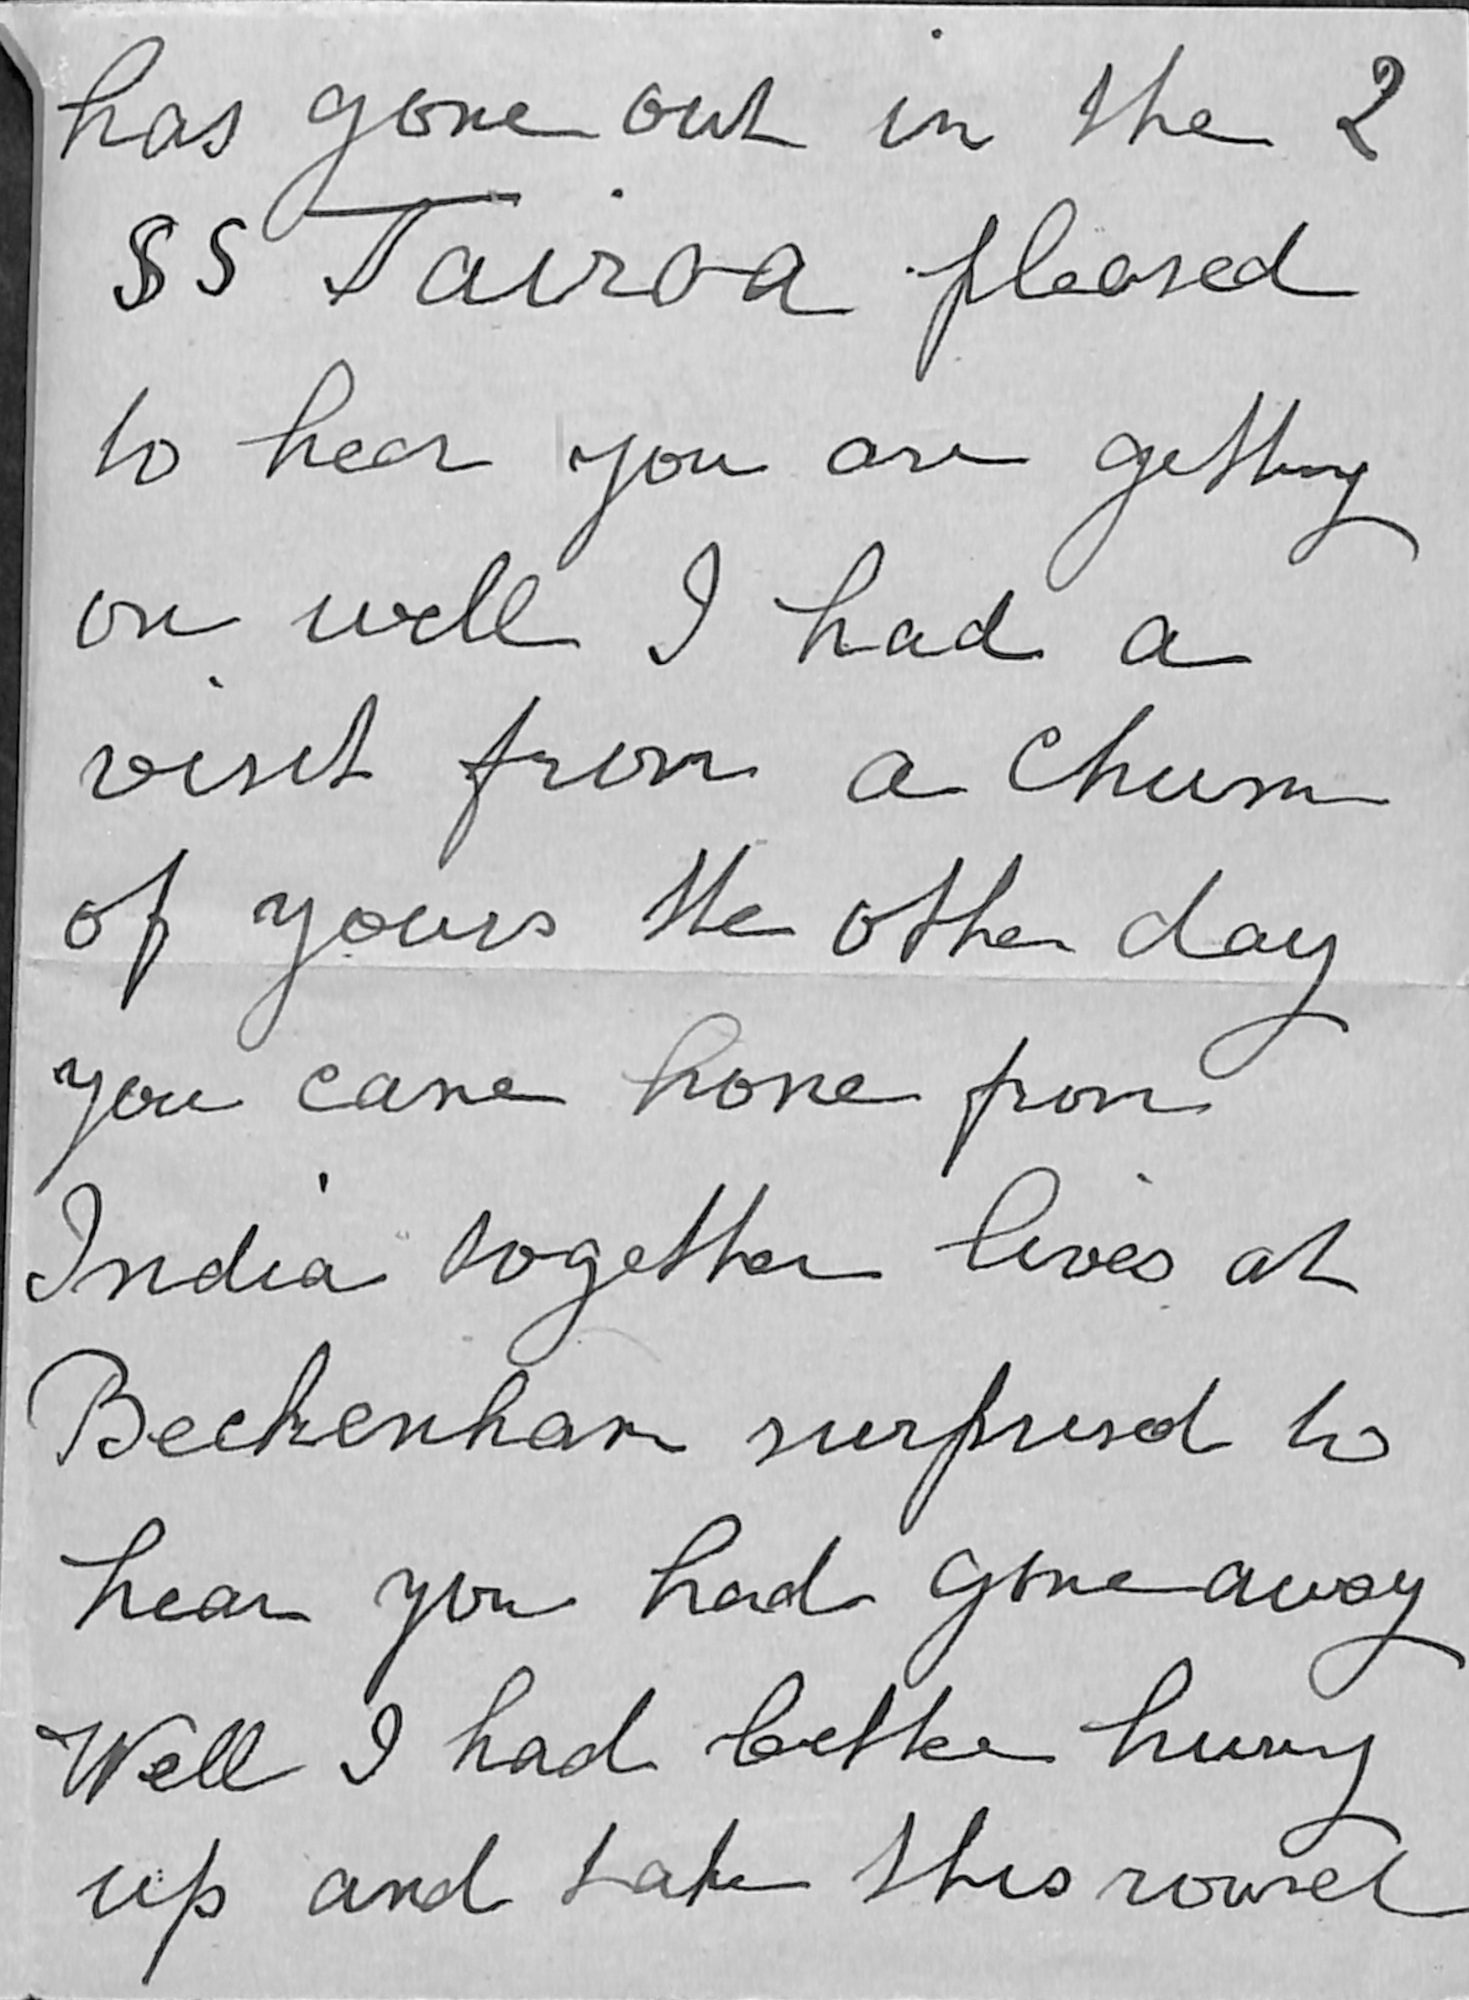 has gone out in the 2
SS Tairoa pleased
to hear you are getting
on well I had a
visit from a chum
of yours the other day
you came home from
India together lives at
Beckenham surprised to
hear you had gone away
Well I had better hurry
up and take this round